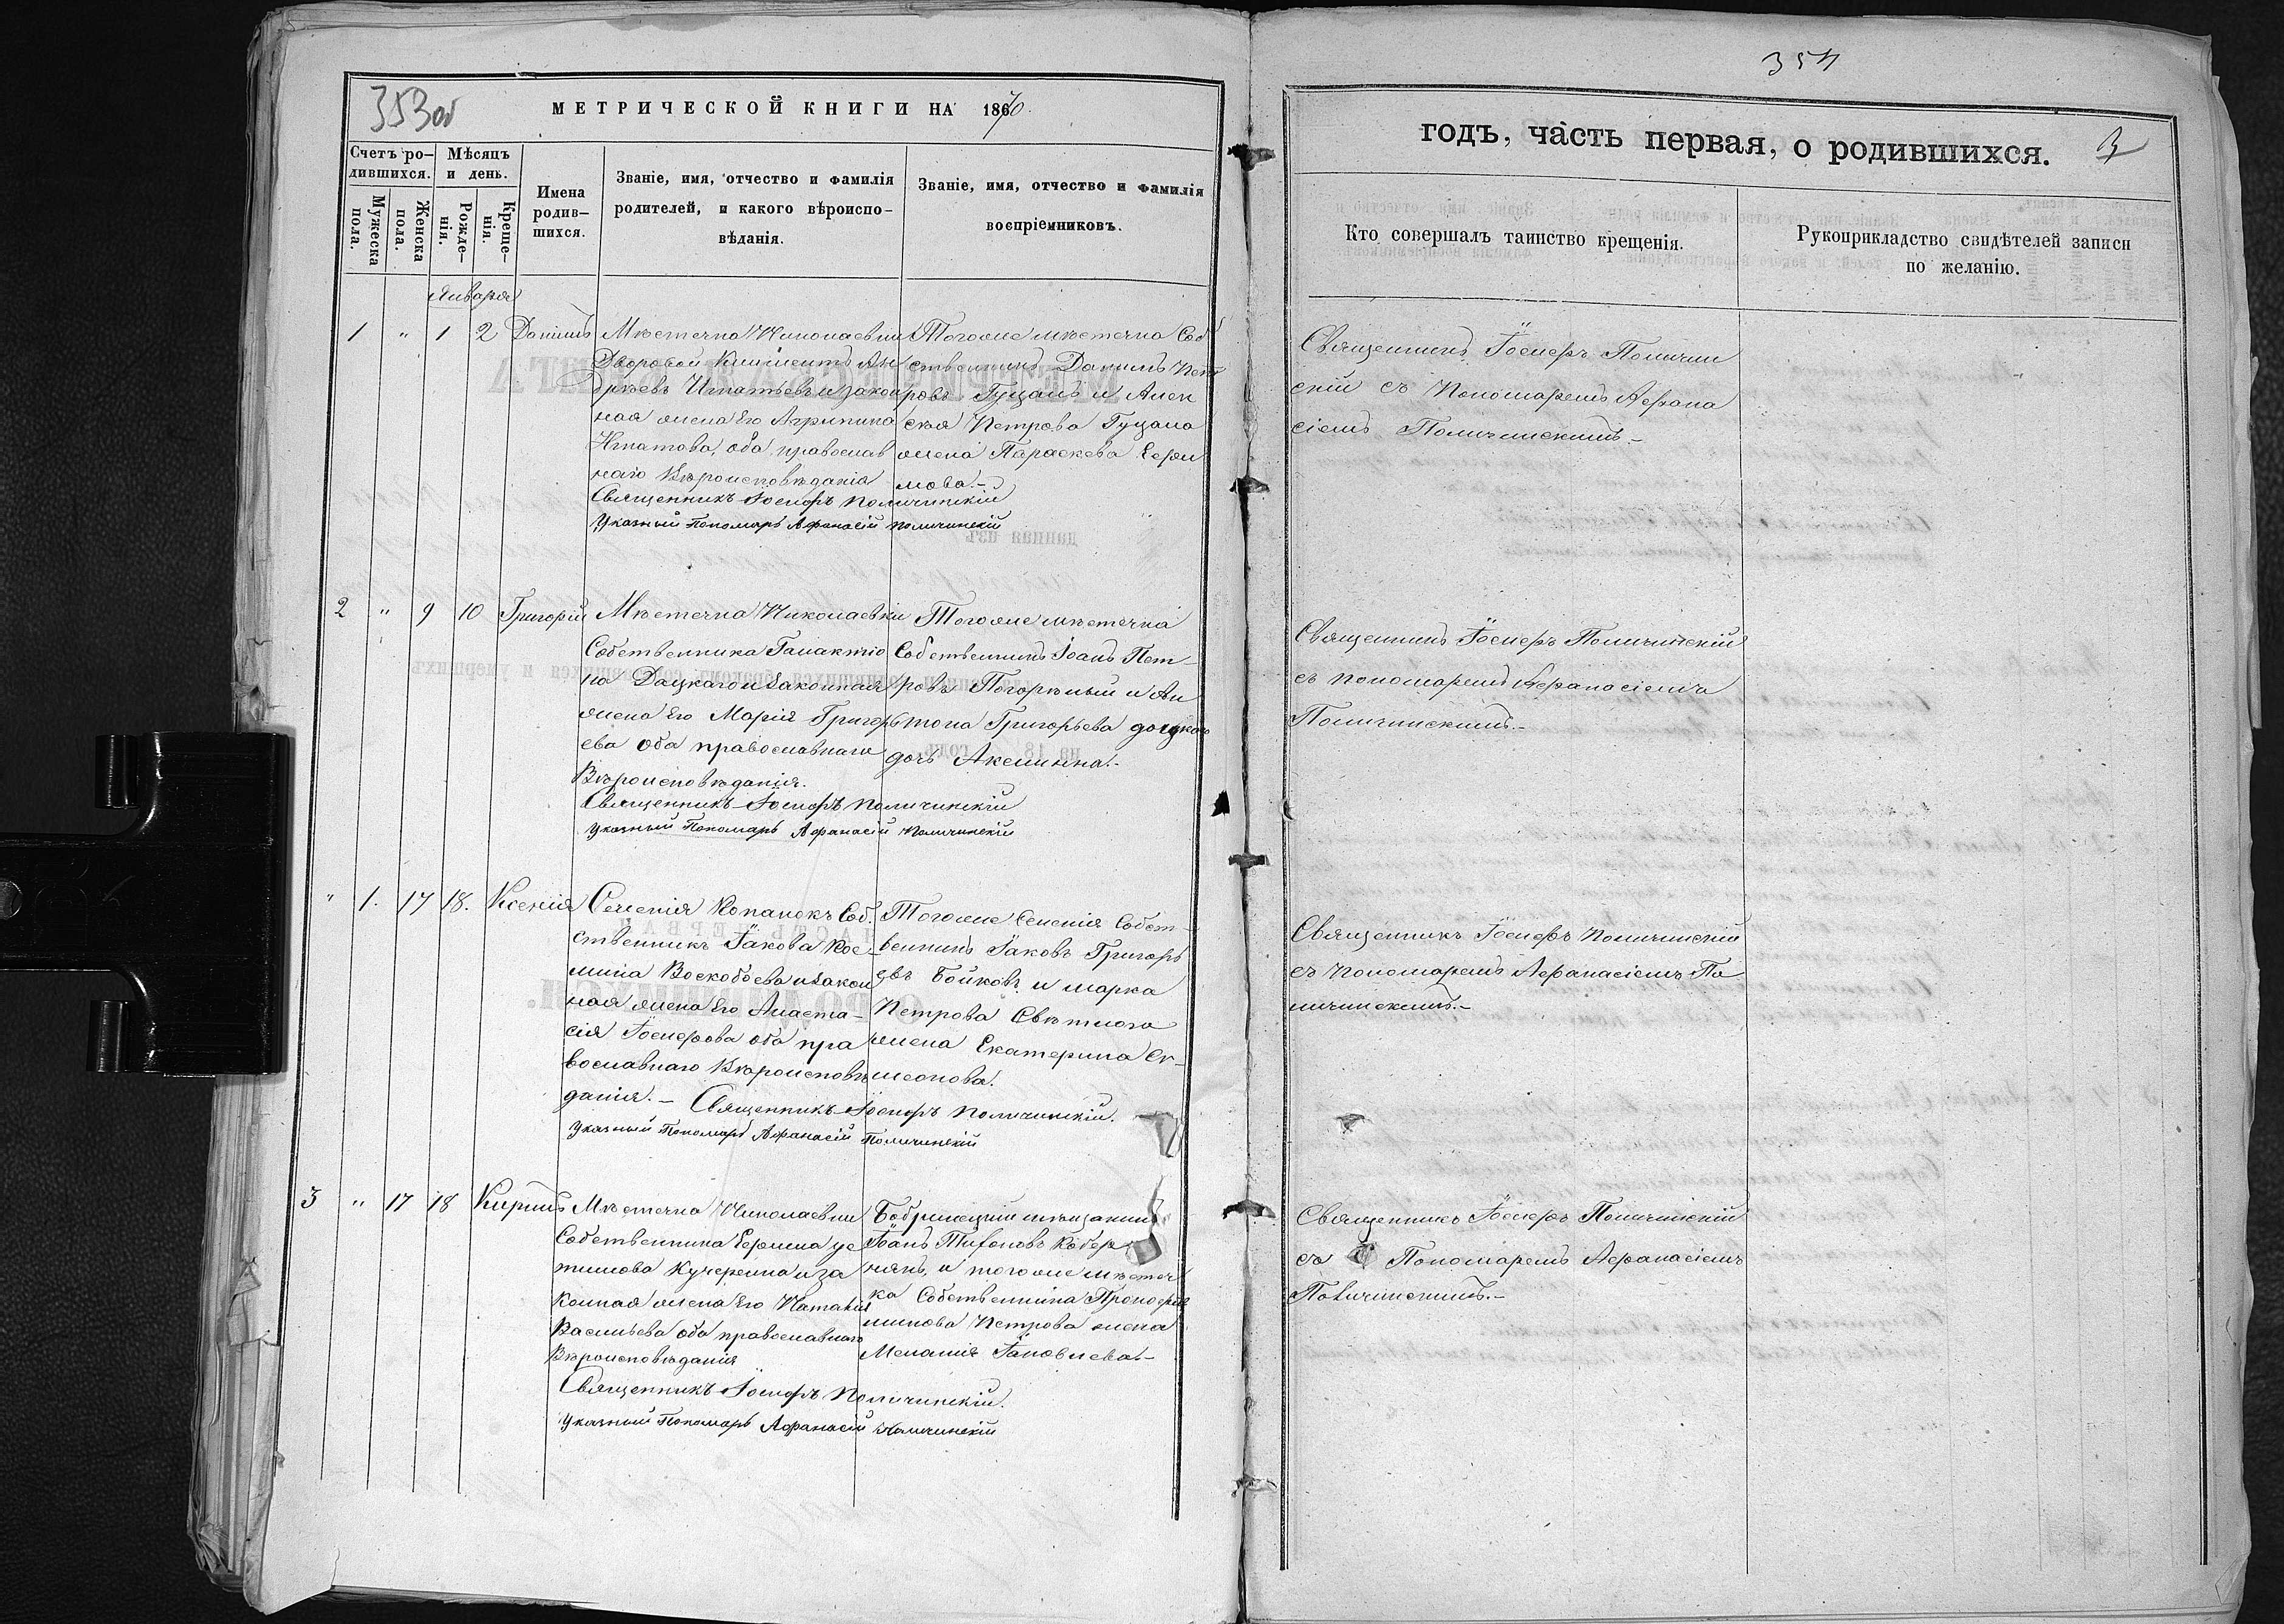 353об
МЕТРИЧЕСКОЙ КНИГИ НА 1870.
Счетъ ро-
дившихся.
Мѣсяцъ
и день.
Мужеска
пола.
Женска
пола.
Рожде-
нія.
Креще-
нія.
Имена
родив-
шихся.
Званіе, имя, отчество и фамилія
родителей, и какого вѣроиспо-
вѣданія.
Званіе, имя, отчество и фамилія
воспріемниковъ.
Января
1 " 1 2 Даніилъ
Мѣстечка Николаевки
Дворовой Климентъ Ан
дреевъ Игнатьевъ и закон
ная жена Его Агрипина
Игнатова, оба православ
наго Вѣроисповѣданія
Священникъ Іосифъ Поличинскій
Указный Пономарь Афанасій Поличинскій
Тогоже мѣстечка Соб
ственникъ Даніилъ Пет
ровъ Гуцалъ и Алек
сѣя Петрова Гуцала
жена Параскева Ефи
мова.-
2 " 9 10 Григорій
Мѣстечка Николаевки
Собственника Галактіо
на Дацкаго и Законная
жена Его Марія Григорь
ева оба православнаго
Вѣроисповѣданія.
Священникъ Іосифъ Поличинскій
Указный Пономарь Афанасій Поличинскій
Тогоже мѣстечка
Собственникъ Іоанъ Пет-
ровъ Погорѣлый и Ан
тона Григорьева дацкаго
дочь Акелина.-
" 1. 17 18. Ксенія
Селенія Копанокъ Соб.
ственникъ Іакова Кос-
мина Воскобоева и Закон
ная жена Его Анаста-
сія Іосифова оба пра
вославнаго Вѣроисповѣ
данія.- Священникъ Іосифъ Поличинскій.
Указный Пономарь Афанасій Поличинскій
Тогоже Селенія Собст-
венникъ Іаковъ Григорь
евъ Бойковъ и марка
Петрова Свѣтлого
жена Екатерина Си-
меонова.
3 " 17 18 Кирилъ
Мѣстечка Николаевки
Собственника Ефима
Кучеренка и за
конная жена Его Наталія
Васильева оба православнаго
Вѣроисповѣданія
Священникъ Іосифъ Поличинскій.
Указный Пономарь Афанасій Поличинскій
Бобринецкій мѣщанинъ
Іоанъ Тихоновъ
и тогоже мѣстеч
ка Собственника
Петрова жена
Меланія Іаковлева.-
354
годъ, часть первая, о родившихся.
3
Кто совершалъ таинство крещенія.
Рукоприкладство свидѣтелей записи
по желанію.
Священникъ Іосифъ Поличин
скій съ Пономаремъ Афана
сіемъ Поличинскимъ.-
Священникъ Іосифъ Поличинскій
съ пономаремъ Афанасіемъ
Поличинскимъ.-
Священникъ Іосифъ Поличинскій
съ Пономаремъ Афанасіемъ По
личинскимъ.-
Священникъ Іосифъ Поличинскій
съ Пономаремъ Афанасіемъ
Поличинскимъ.-